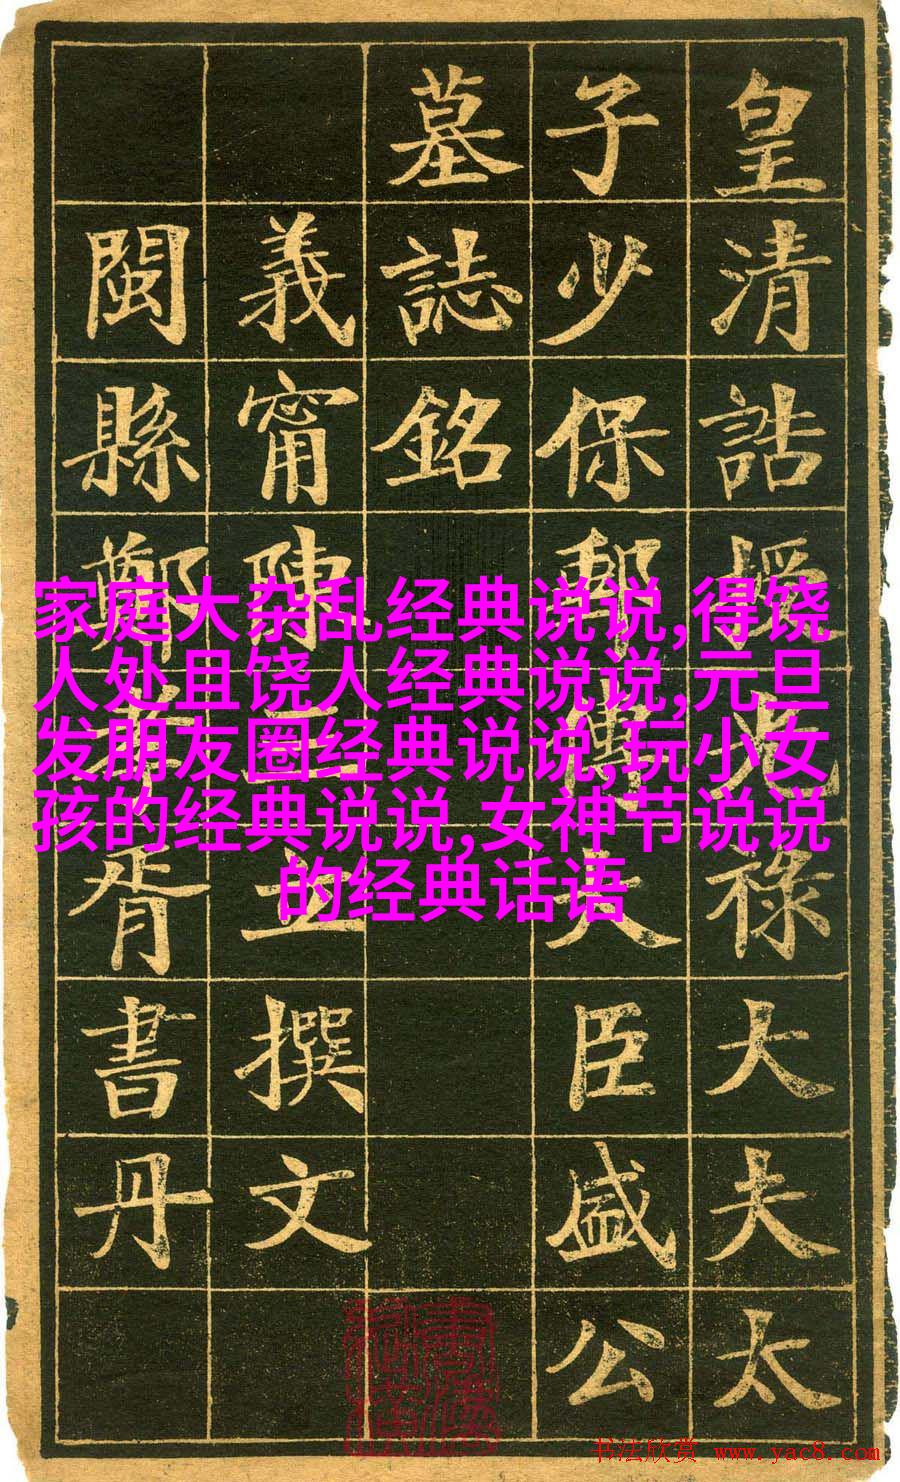 皇清誥授光祿大夫太
子少保郵傳大臣盛公
墓誌銘
義甯陳三立撰文
閩縣鄭孝胥書丹
家庭大杂乱经典说说,得饶
人处且饶人经典说说,元旦
发朋友圈经典说说,玩小女
孩的经典说说,女神节说说
的经典话语
书法欣赏 www.yac8.com